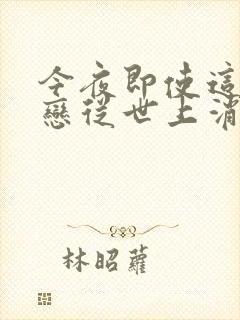 今夜即使這
戀從世上消
林昭蘿